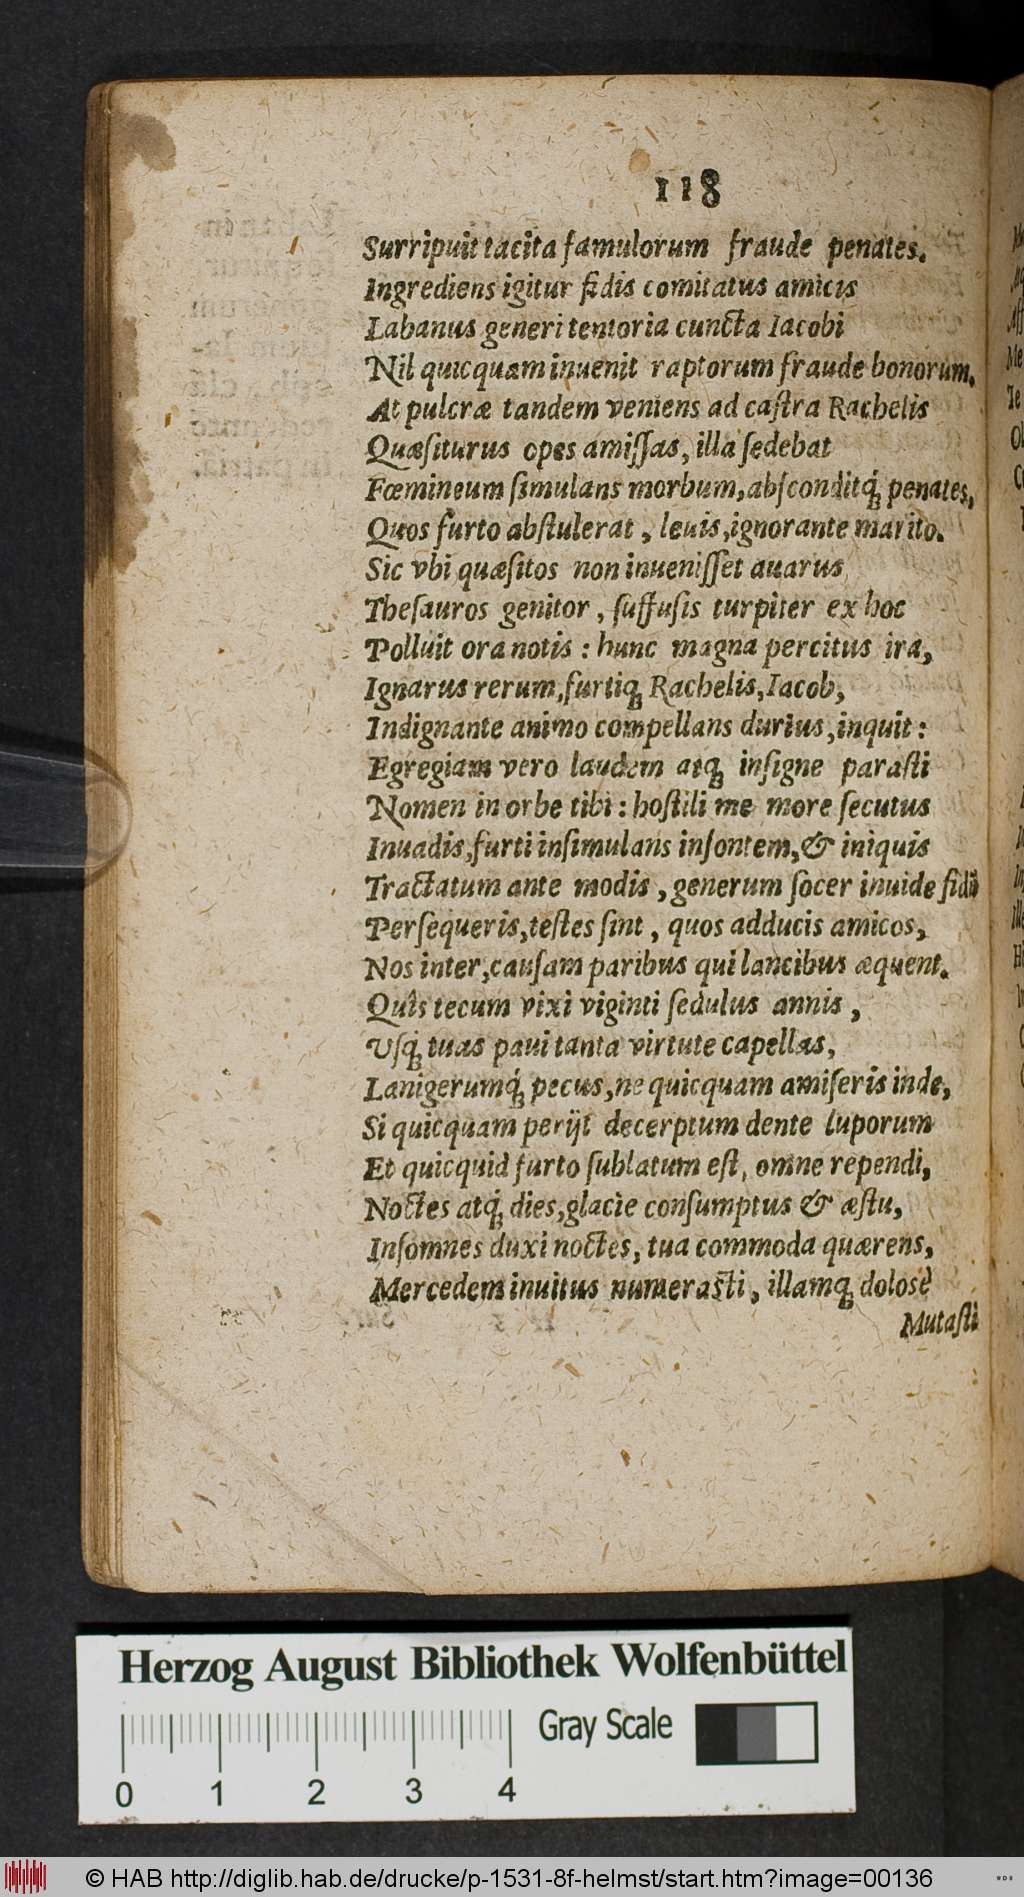 118
Surripuit tacita famulorum fraude penates.
Ingrediens igitur fidis comitatus amicis
Labanus generi tentoria cuncta Iacobi
Nil quicquam inuenit raptorum fraude bonorum.
At pulcræ tandem veniens ad caſtra Rachelis
Quæſiturus opes amiſſas, illa ſedebat
Fœmineum ſimulans morbum, abſconditq́; penates,
Quos furto abſtulerat, leuis, ignorante marito.
Sic vbi quæſitos non inueniſſet auarus
Theſauros genitor, ſuffuſis turpiter ex hoc
Polluit ora notis: hunc magna percitus ira,
Ignarus rerum, furtiq; Rachelis, Iacob,
Indignante animo compellans durius, inquit:
Egregiam vero laudem atq; inſigne paraſti
Nomen in orbe tibi: hoſtili me more ſecutus
Inuadis, furti inſimulans inſontem, & iniquis
Tractatum ante modis, generum ſocer inuide fidū
Perſequeris, teſtes ſint, quos adducis amicos,
Nos inter, cauſam paribus qui lancibus æquent.
Quîs tecum vixi viginti ſedulus annis,
Uſq́; tuas paui tanta virtute capellas,
Lanigerumq́; pecus, ne quicquam amiſeris inde,
Si quicquam perijt decerptum dente luporum
Et quicquid furto ſublatum eſt, omne rependi,
Noctes atq́; dies, glacie conſumptus & æſtu,
Inſomnes duxi noctes, tua commoda quærens,
Mercedem inuitus numeraſti, illamq; dolosè
Mutaſti
Herzog August Bibliothek Wolfenbüttel
Gray Scale
0 1 2 3 4
© HAB http://diglib.hab.de/drucke/p-1531-8f-helmst/start.htm?image=00136